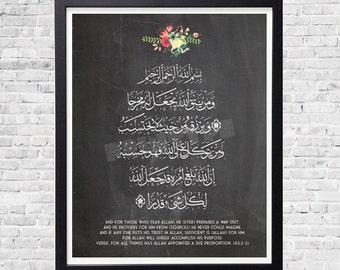 بسم الله الرحمن الرحيم
ومن يتق الله يجعل له مخرجا
ويرزقه من حيث لا يحتسب
ومن يتوكل على الله فهو حسبه
إن الله بالغ أمره قد جعل الله
لكل شيء قدرا
AND FOR THOSE WHO FEAR ALLAH, HE (EVER) PREPARES A WAY OUT,
AND HE PROVIDES FOR HIM FROM (SOURCES) HE NEVER COULD IMAGINE.
AND IF ANY ONE PUTS HIS TRUST IN ALLAH, SUFFICIENT IS (ALLAH) FOR HIM.
FOR ALLAH WILL SURELY ACCOMPLISH HIS PURPOSE.
VERILY, FOR ALL THINGS HAS ALLAH APPOINTED A DUE PROPORTION. (65:2-3)